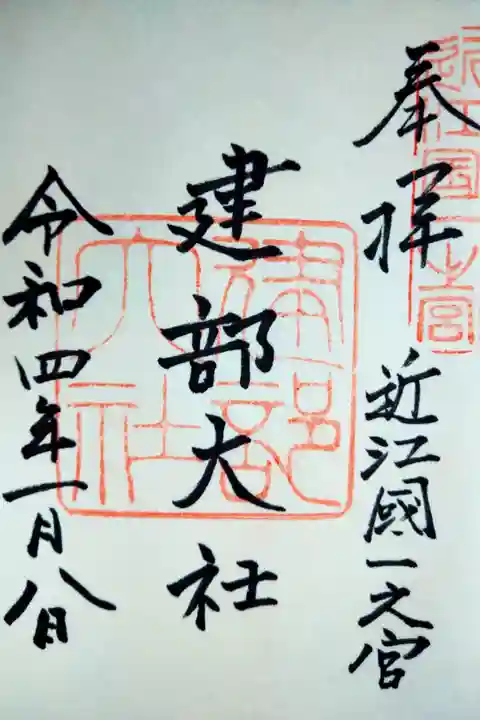 奉拝
近江國一之宮
近江国一之宮
建部大社
建部大社
令和四年一月八日